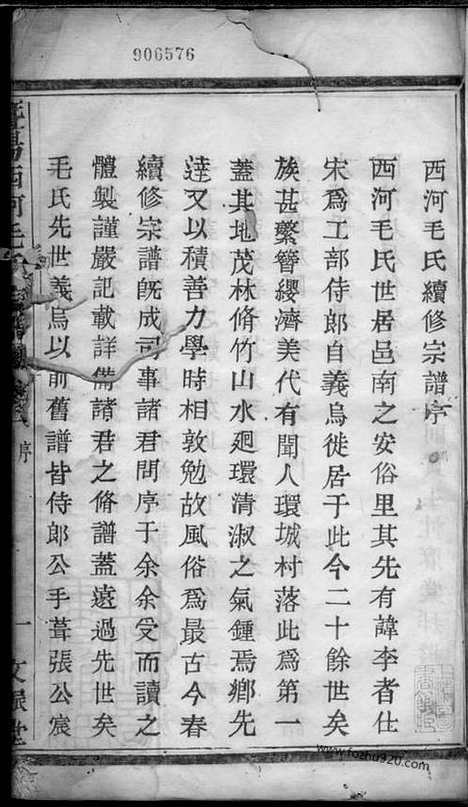 906576
西河毛氏續修宗譜序
西河毛氏世居邑南之安俗里其先有諱李者仕
宋爲工部侍郎自義烏徙居于此今二十餘世矣
族甚繁簪纓濟美代有聞人環城村落此爲第一
蓋其地茂林脩竹山水廻環清淑之氣鍾焉鄉先
逹又以積善力學時相敦勉故風俗爲最古今春
續修宗譜旣成司事諸君問序于余余受而讀之
體製謹嚴記載詳備諸君之脩譜蓋遠過先世矣
毛氏先世義烏以前舊譜皆侍郎公手葺張公宸
暨陽西河毛氏宗譜
序
一
文
堂
www.fozhu920.com